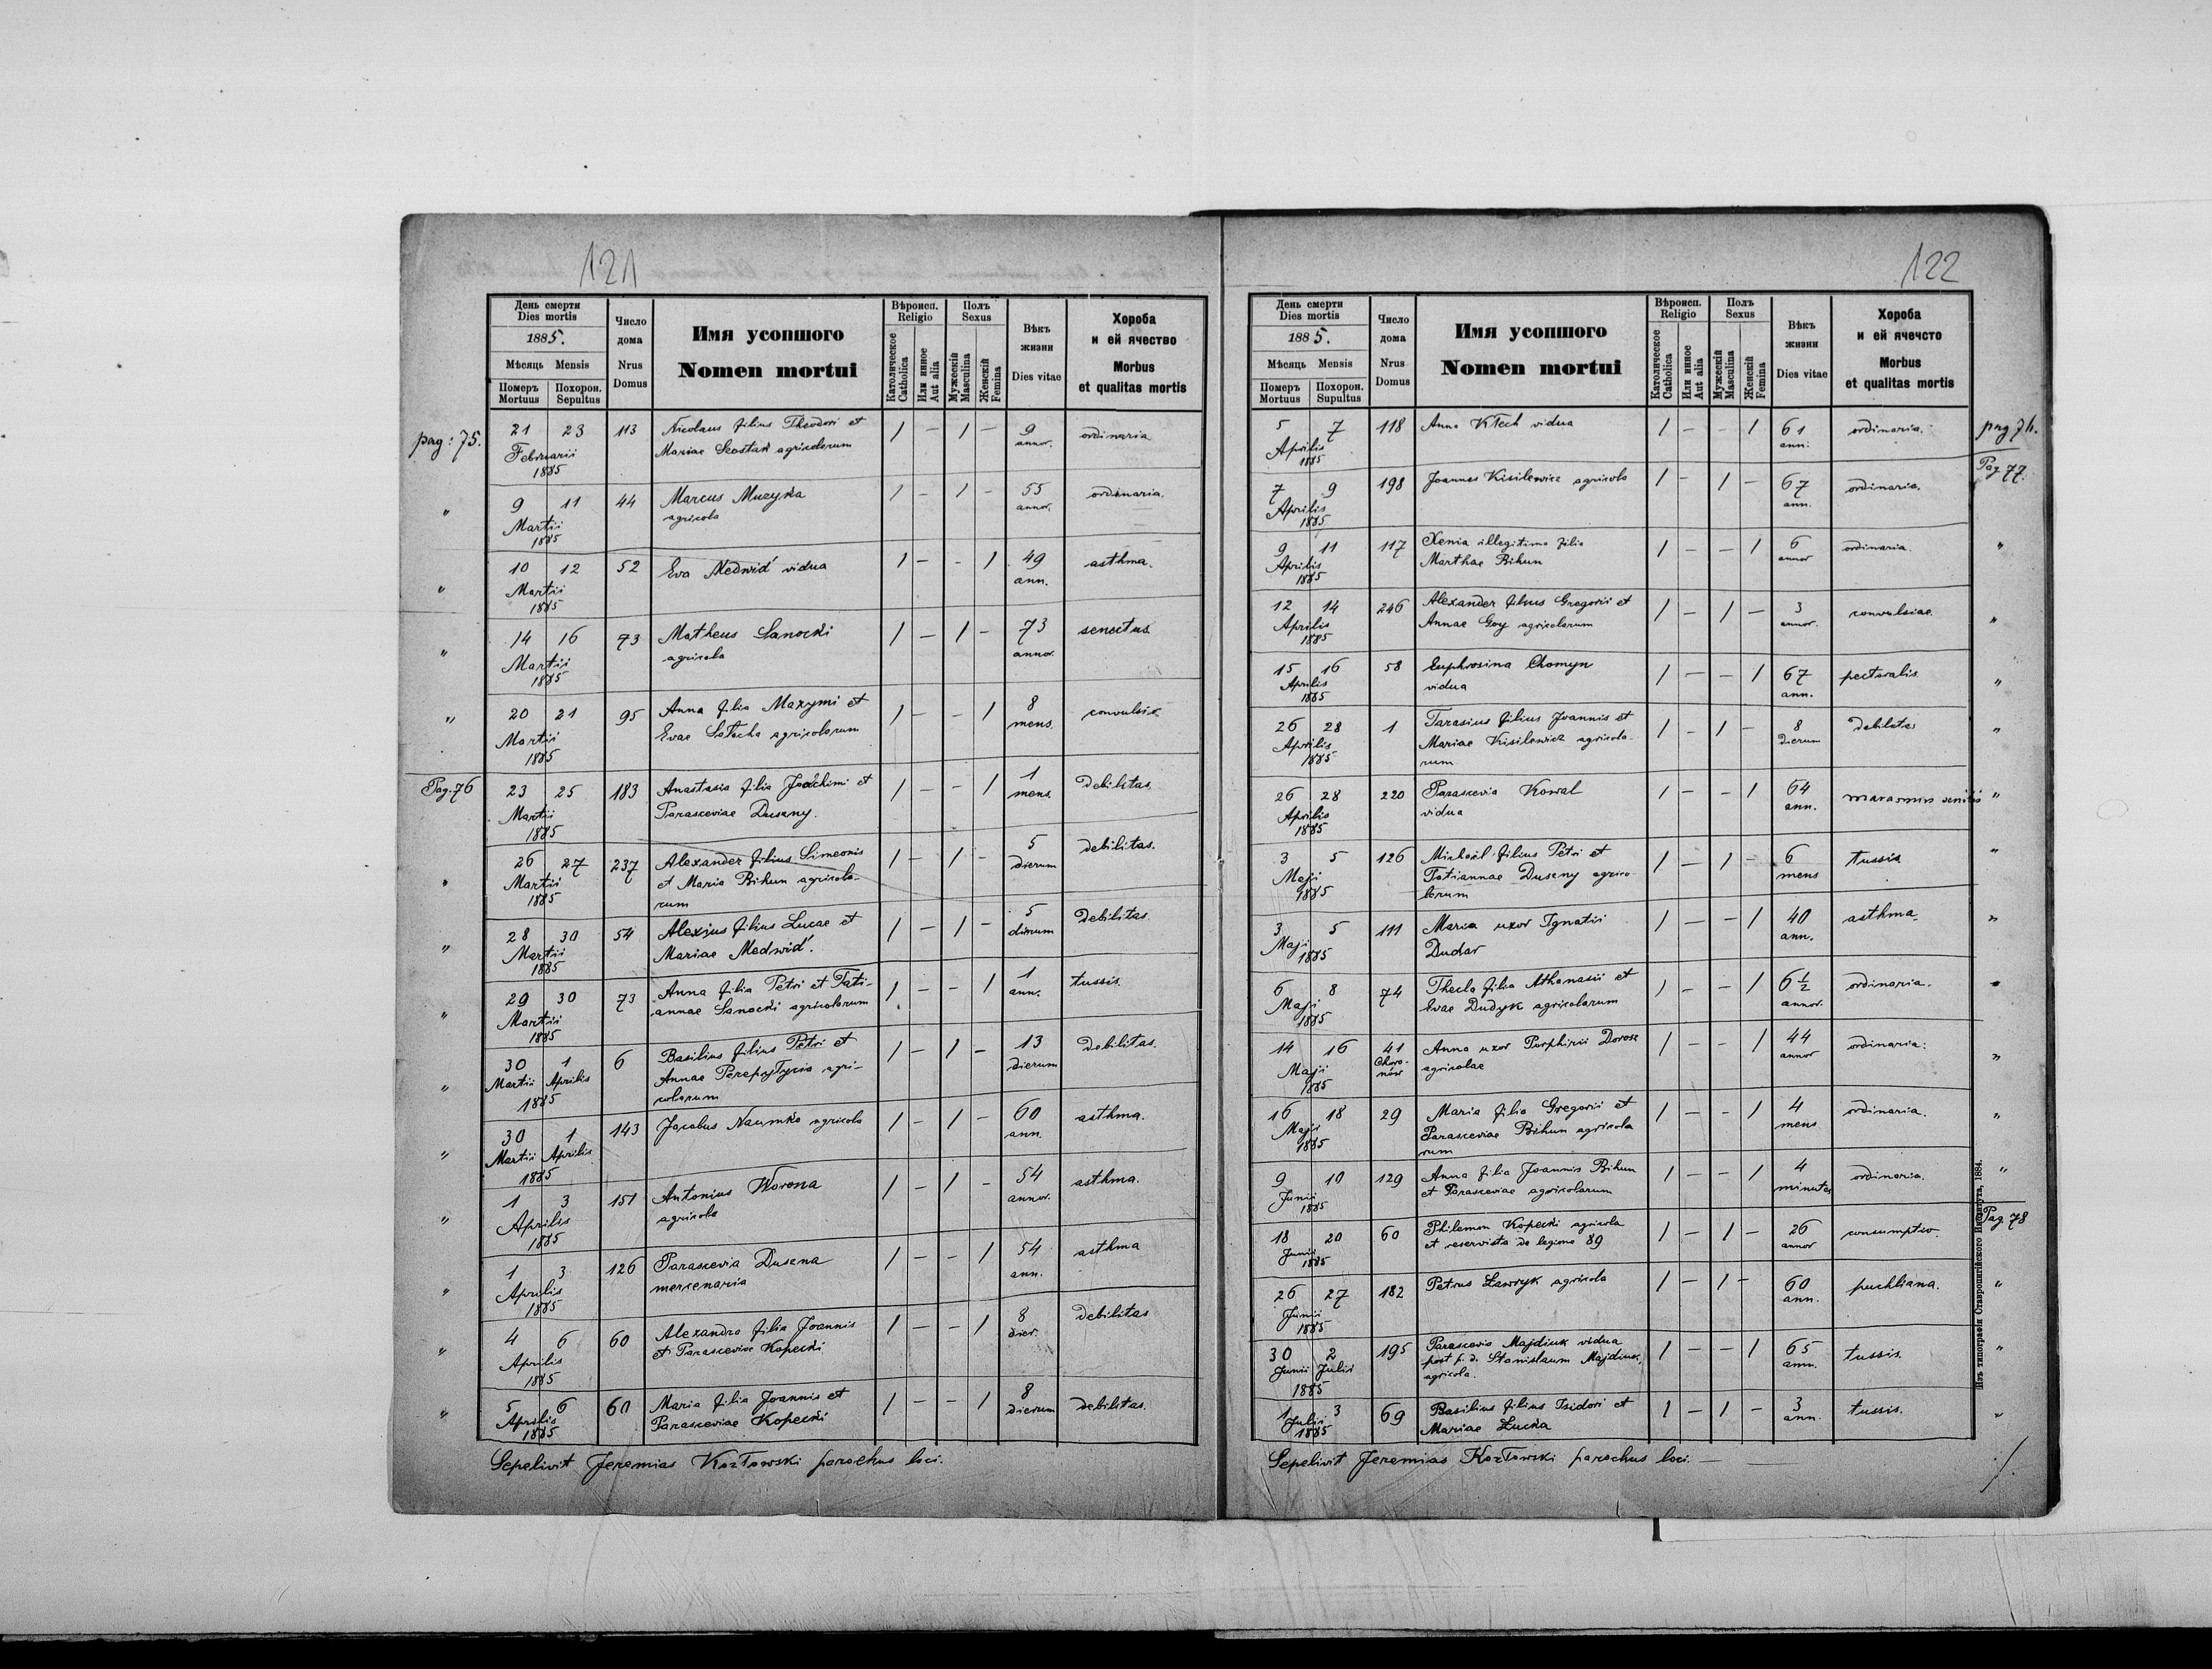 121
День смерти
Dies mortis
1885.
Мѣсяць Mensis
Померъ
Mortuus
Похорон.
Sepultus
Число
дома
Nrus
Domus
Имя усопшого
Nomen mortui
Вѣроисп.
Religio
Католическое
Catholica
Или инное
Aut alia
Полъ
Sexus
Мужескій
Masculina
Женскій
Femina
Вѣкъ
жизни
Dies vitae
Хороба
и ей ячество
Morbus
et qualitas mortis
pag: 75. 21 23 113 Nicolaus filius Theodori et 1 – 1 – 9 ordinaria
Februarii Mariae agricolarum annor.
1885
" 9 11 44 Marcus Muzyka 1 – 1 – 55 ordinaria.
Martii agricola annor.
1885
" 10 12 52 Eva Medwid' vidua 1 – – 1 49 asthma.
Martii ann.
1885
" 14 16 73 Matheus Sanocki 1 – 1 – 73 senectus
Martii agricola annor.
1885
" 20 21 95 Anna filia Maxymi et 1 – – 1 8 convulsix
Martii Evae agricolarum mens.
1885
Pag. 76 23 25 183 Anastasia filia Joachimi et 1 – – 1 1 debilitas
Martii Parasceviae Duszny. mens.
1885
" 26 27 237 Alexander filius Simeonis 1 – 1 – 5 debilitas.
Martii et Maria Bihun agricola- dierum
1885 rum
" 28 30 54 Alexius filius Lucae et 1 – 1 – 5 debilitas.
Martii Mariae Medwid'. dierum
1885
" 29 30 73 Anna filia Petri et Tati- 1 – – 1 1 tussis.
Martii annae Sanocki agricolarum ann.
1885
" 30 1 6 Basilius filius Petri et 1 – 1 – 13 debilitas.
Martii Aprilis Annae agri- dierum
1885 colarum
" 30 1 143 Jacobus Naumko agricola 1 – 1 – 60 asthma.
Martii Aprilis ann.
1885
" 1 3 151 Antonius Worona 1 – 1 – 54 asthma.
Aprilis agricola annor.
1885
" 1 3 126 Parascevia Duszna 1 – – 1 54 asthma
Aprilis mercenaria ann.
1885
" 4 6 60 Alexandra filia Joannis 1 – – 1 8 debilitas
Aprilis et Parasceviae Kopecki dier.
1885
" 5 6 60 Maria filia Joannis et 1 – – 1 8 debilitas.
Aprilis Parasceviae Kopecki dierum
1885
Sepelivit Jeremias Kozłowski parochus loci.
122
День смерти
Dies mortis
1885.
Мѣсяць Mensis
Померъ
Mortuus
Похорон.
Supultus
Число
дома
Nrus
Domus
Имя усопшого
Nomen mortui
Вѣроисп.
Religio
Католическое
Catholica
Или инное
Aut alia
Полъ
Sexus
Мужескій
Masculina
Женскій
Femina
Вѣкъ
жизни
Dies vitae
Хороба
и ей ячечсто
Morbus
et qualitas mortis
5 7 118 Anna Kłech vidua 1 – – 1 61 ordinaria. pag 76.
Aprilis ann.
1885
7 9 198 Joannes Kisilewicz agricola 1 – 1 – 67 ordinaria. Pag 77.
Aprilis ann.
1885
9 11 117 Xenia illegitima filia 1 – – 1 6 ordinaria. "
Aprilis Marthae Bihun annor
1885
12 14 246 Alexander filius Gregorii et 1 – 1 – 3 convulsiae. "
Aprilis Annae Goy agricolarum annor.
1885
15 16 58 Euphrosina Chomyn 1 – – 1 67 pectoralis "
Aprilis vidua ann.
1885
26 28 1 Tarasius filius Joannis et 1 – 1 – 8 debilitas "
Aprilis Mariae Kisilewicz agricola- dierum
1885 rum
26 28 220 Parascevia Kowal 1 – – 1 64 marasmus senilis "
Aprilis vidua ann.
1885
3 5 126 Michaël filius Petri et 1 – 1 – 6 tussis "
Maji Tatiannae Duszny agrico- mens
1885 larum
3 5 111 Maria uxor Ignatii 1 – – 1 40 asthma. "
Maji Dudar ann.
1885
6 8 74 Thecla filia Athanasii et 1 – – 1 6 ½ ordinaria. "
Maji Evae Dudyk agricolarum annor.
1885
14 16 41 Anna uxor Porphirii Dorosz 1 – – 1 44 ordinaria. "
Maji agricolae annor
1885
16 18 29 Maria filia Gregorii et 1 – – 1 4 ordinaria. "
Maji Parasceviae Bihun agricola mens
1885 rum
9 10 129 Anna filia Joannis Bihun 1 – – 1 4 ordinaria. "
Junii et Parasceviae agricolarum minutes
1885
18 20 60 Philemon Kopecki agricola 1 – 1 – 26 consumptio. Pag 78
Junii et reservista de legione 89 annor
1885
26 27 182 Petrus Ławryk agricola 1 – 1 – 60 puchliana. "
Junii ann.
1885
30 2 195 Parascevia Majdiuk vidua 1 – – 1 65 tussis. "
Junii Julii post p. d. Stanislaum Majdiuk, ann.
1885 agricola.
1 3 69 Basilius filius Isidori et 1 – 1 – 3 tussis. "
Julii Mariae Łucka ann.
1885
Sepelivit Jeremias Kozłowski parochus loci. —
Изъ типографіи Ставропигійского Института, 1884.